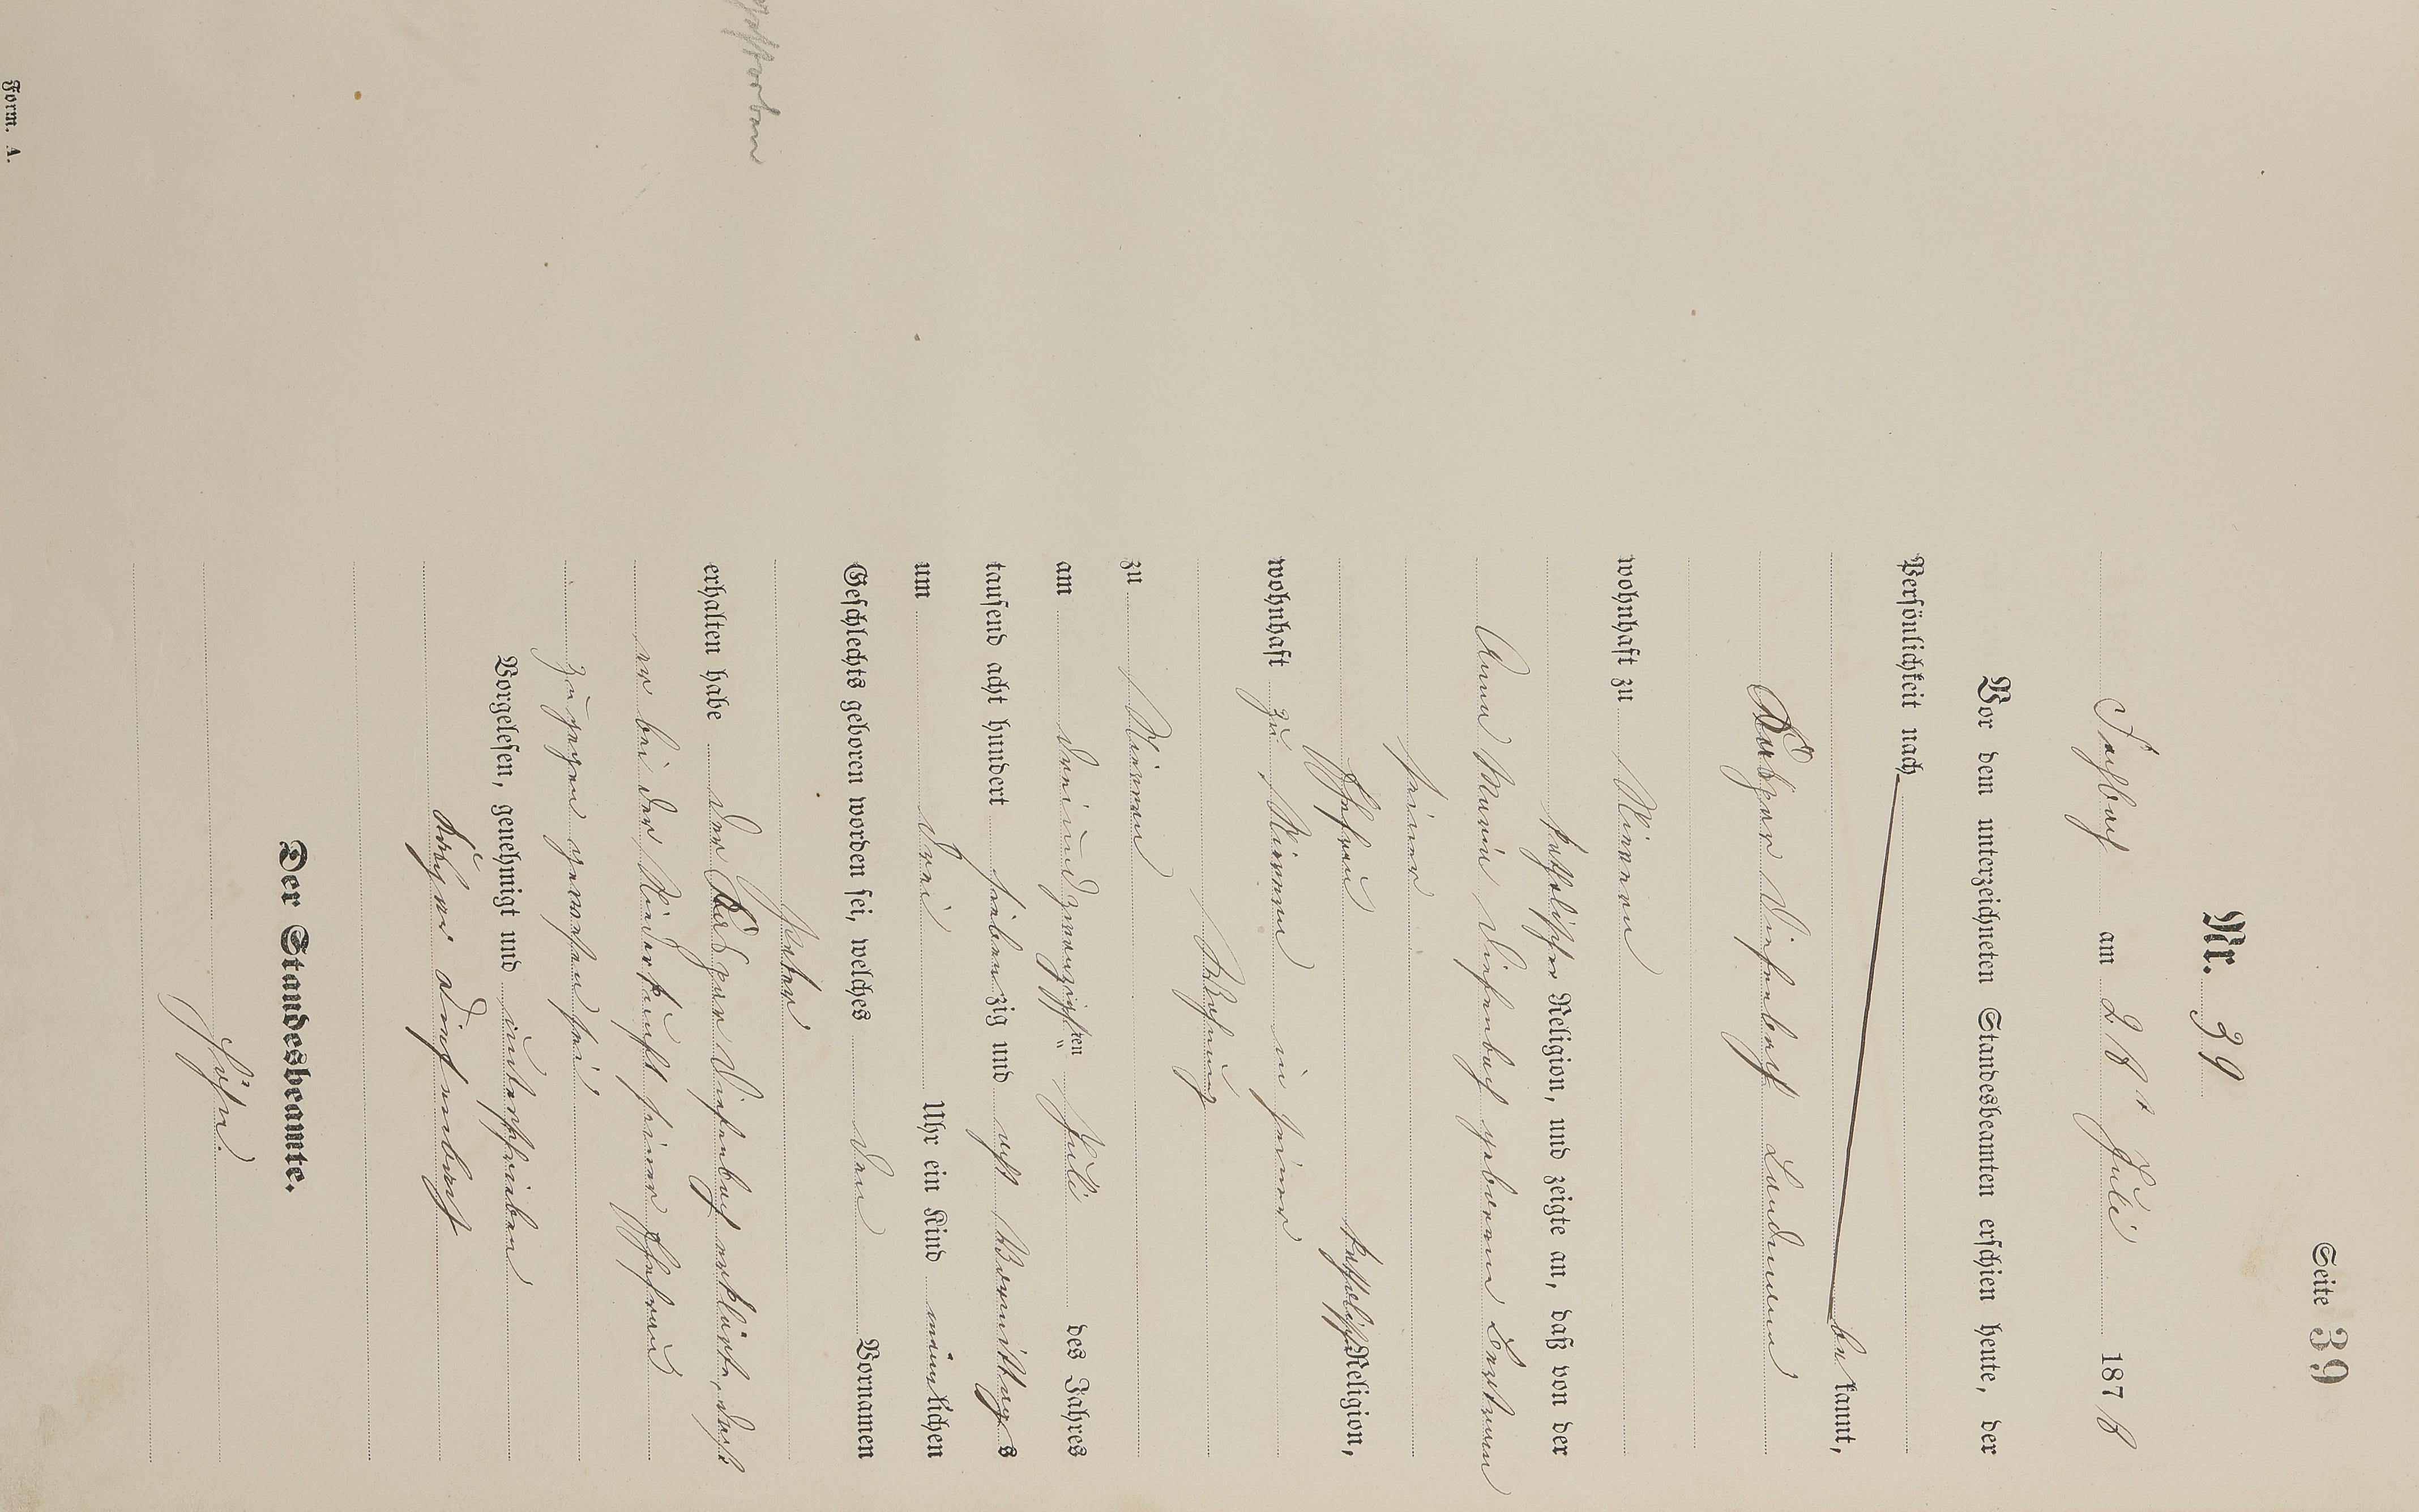 Seite 39
Nr. 39
am 28t Juli 1878
Vor dem unterzeichneten Standesbeamten erschien heute, der
Persönlichkeit nach
be kannt,
Kaspar Diefenbach Landmann
wohnhaft zu
katholischer Religion, und zeigte an, daß von der
Anna Maria Diefenbach geborene
seiner
Ehefrau katholischer Religion,
wohnhaft zu in seiner
Wohnung
zu
am dreiundzwanzigsten Juli des Jahres
tausend acht hundert siebenzig und acht Vormittags
um drei Uhr ein Kind männlichen
Geschlechts geboren worden sei, welches den Vornamen
Peter
erhalten habe der Kaspar Diefenbach erklärte, dass
er bei der Niederkunft seiner Ehefrau
zugegen gewesen sei
Vorgelesen, genehmigt und unterschrieben
Kaspar Diefenbach
Der Standesbeamte.
gestorben
Form. A.